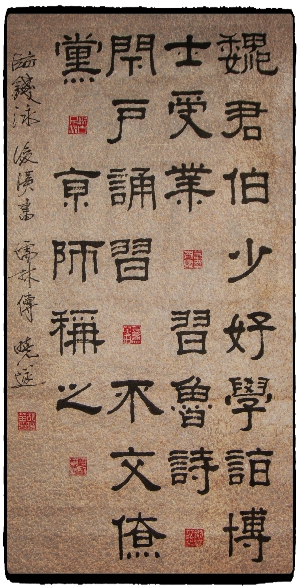 魏君伯少好學詣博
士受業習魯詩
閉戶誦習不交僚
黨京師稱之
臨錢泳後漢書儒林傳